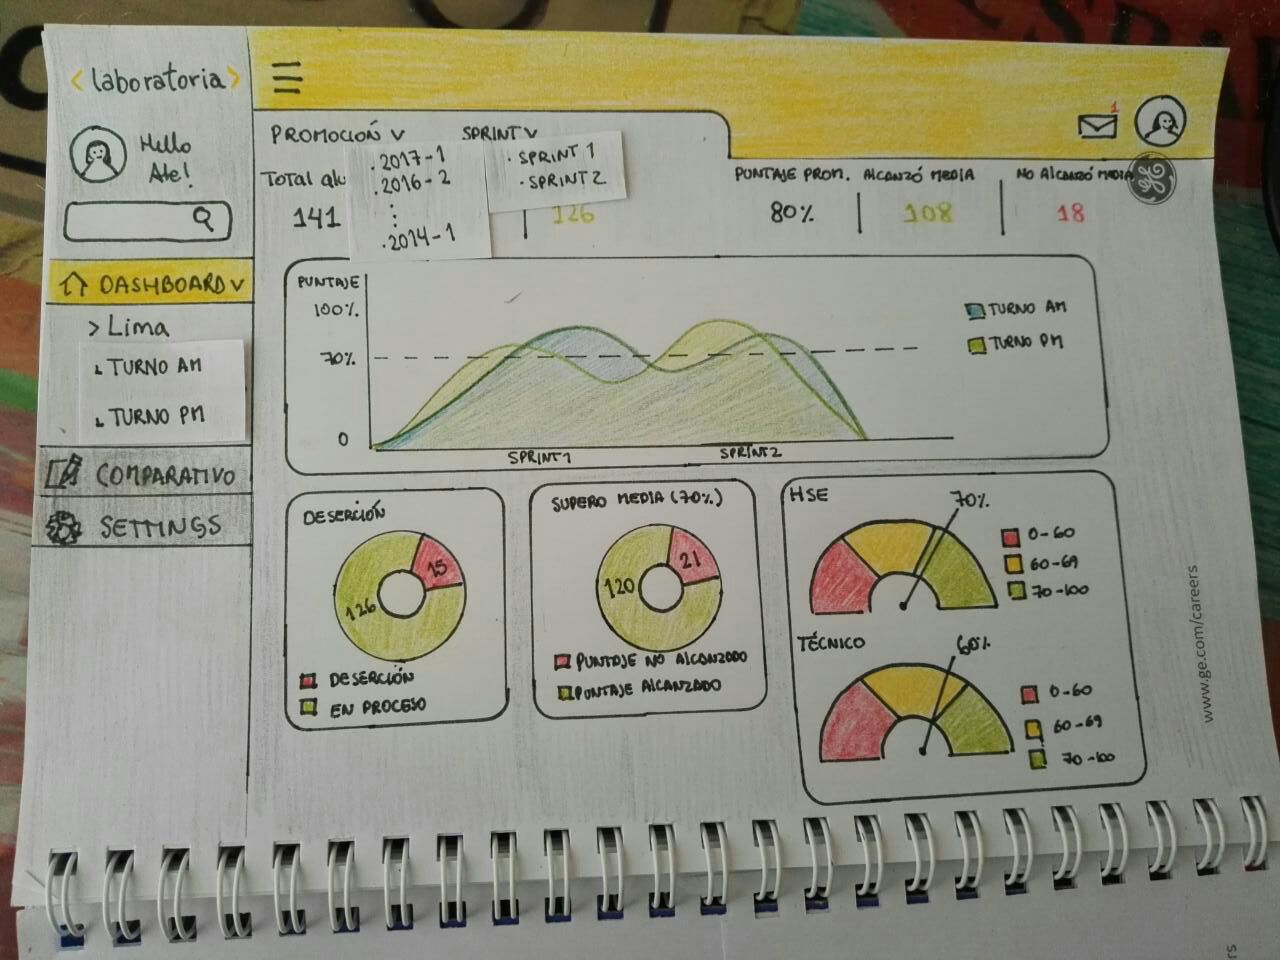 < laboratoria >
Hello
Ale!
DASHBOARD V
> Lima
TURNO AM
TURNO PM
COMPARATIVO
SETTINGS
PROMOCIÓN V
SPRINT V
. 2017-1
. 2016-2
. 2014-1
. SPRINT 1
. SPRINT 2
1
Total alu
141
126
PUNTAJE PROM.
80%
ALCANZÓ MEDIA
108
NO ALCANZÓ MEDIA
18
PUNTAJE
100%
70%
0
SPRINT 1
SPRINT 2
TURNO AM
TURNO PM
DESERCIÓN
15
126
DESERCIÓN
EN PROCESO
SUPERO MEDIA (70%)
21
120
PUNTAJE NO ALCANZADO
PUNTAJE ALCANZADO
HSE
70%
0-60
60-69
70-100
TÉCNICO
0-60
60-69
70-100
GE
www.ge.com/careers